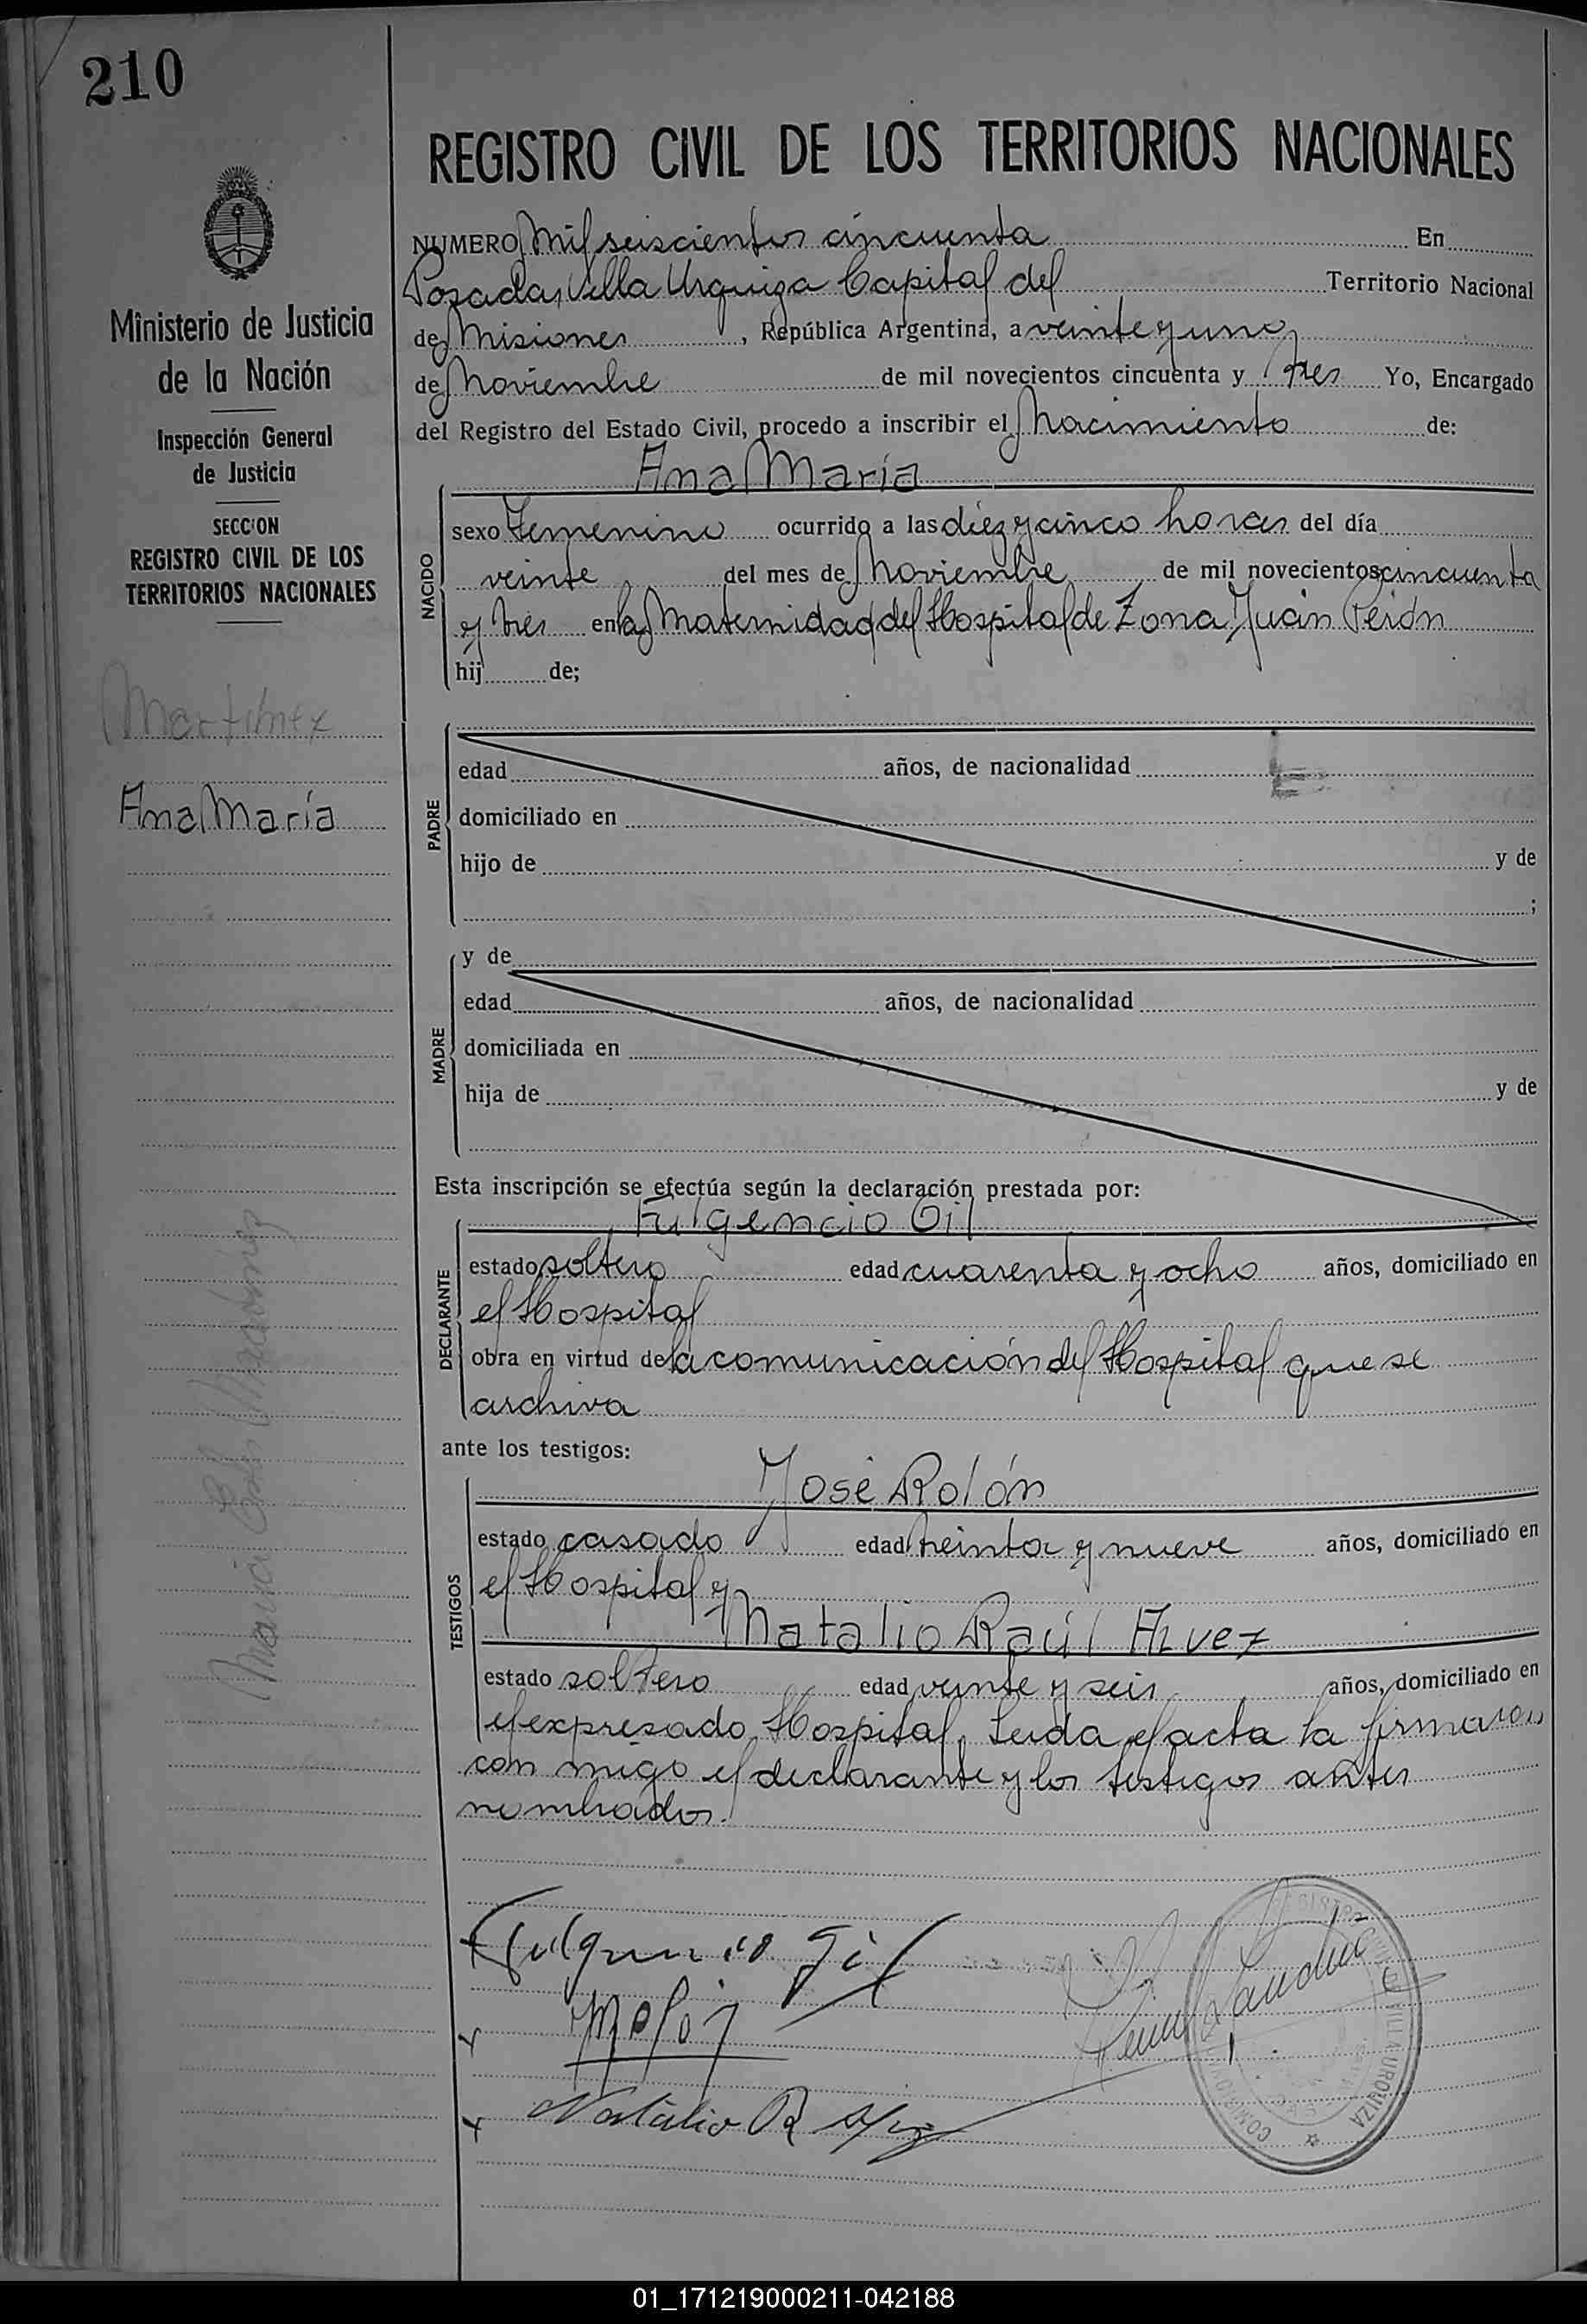 210
Ministerio de Justicia
de la Nación
Inspección General
de Justicia
SECCION
REGISTRO CIVIL DE LOS
TERRITORIOS NACIONALES
Martinez
Ana María
REGISTRO CIVIL DE LOS TERRITORIOS NACIONALES
NUMERO Mil seiscientos cincuenta En
Posadas, Villa Urquiza Capital del Territorio Nacional
de Misiones, República Argentina, a veinte y uno
de Noviembre de mil novecientos cincuenta y tres Yo, Encargado
del Registro del Estado Civil, procedo a inscribir el Nacimiento de:
Ana María
NACIDO
sexo Femenino ocurrido a las diez y cinco horas del día
veinte del mes de Noviembre de mil novecientos cincuenta
y tres en la Maternidad del Hospital de Zona Juan Perón
hij de;
PADRE
edad años, de nacionalidad
domiciliado en
hijo de y de
;
MADRE
y de
edad años, de nacionalidad
domiciliada en
hija de y de
Esta inscripción se efectúa según la declaración prestada por:
Fulgencio Gil
DECLARANTE
estado soltero edad cuarenta y ocho años, domiciliado en
el Hospital
obra en virtud de la comunicación del Hospital que se
archiva
ante los testigos:
José Rolón
TESTIGOS
estado casado edad treinta y nueve años, domiciliado en
el Hospital y
Natalio Raúl Alvez
estado soltero edad veinte y seis años, domiciliado en
el expresado Hospital. Leida el acta la firmaron
con migo el declarante y los testigos antes
nombrados.
Fulgencio Gil
Natalio R
VILLA URQUIZA
01_171219000211-042188